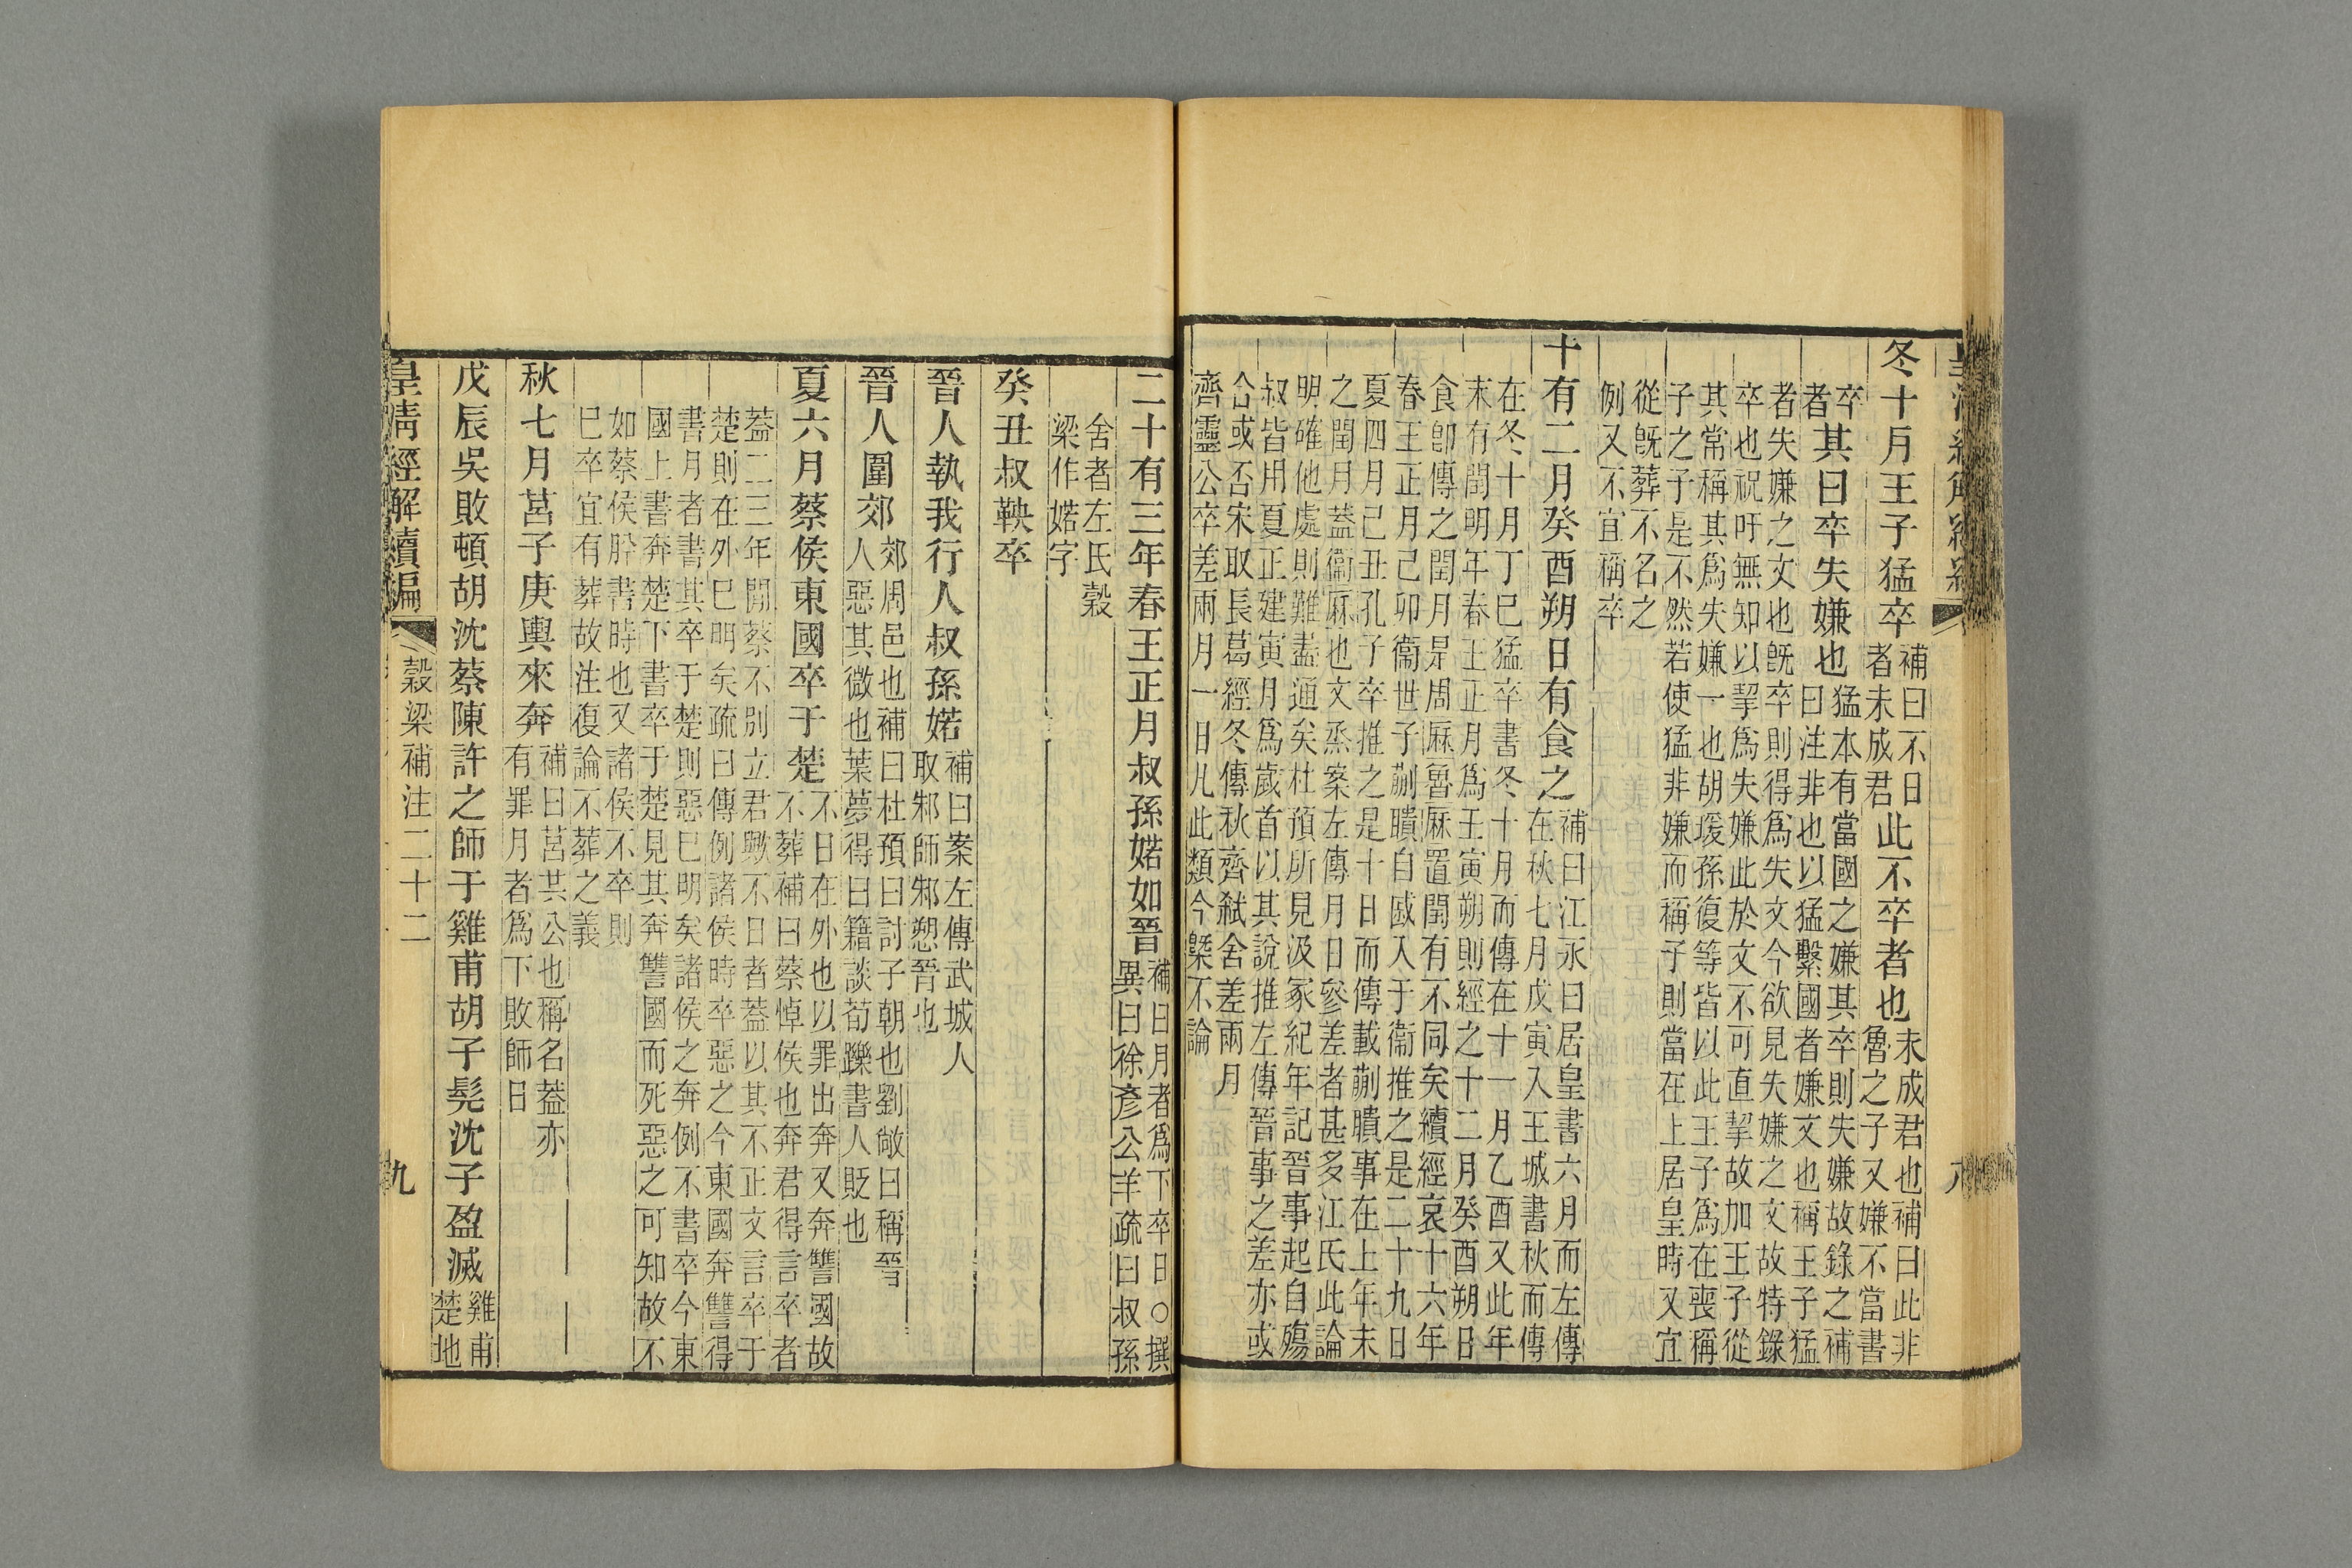 冬十月王子猛卒
補曰不日
者未成君
此不卒者也
未成君也補曰此非
魯之子又嫌不當書
卒
者
其日卒失嫌也
猛本有當國之嫌其卒則失嫌故錄之補
曰注非也以猛繫國者嫌文也稱王子猛
者失嫌之文也旣卒則得爲失文今欲見失嫌之文故特錄
卒也祝吁無知以挈爲失嫌此於文不可直挈故加王子從
其常稱其爲失嫌一也胡瑗孫復等皆以此王子爲在喪稱
子之子是不然若使猛非嫌而稱子則當在上居皇時又宜
從旣葬不名之
例又不宜稱卒
十有二月癸酉朔日有食之
補曰江永曰居皇書六月而左傳
在秋七月戊寅入王城書秋而傳
在冬十月丁巳猛卒書冬十月而傳在十一月乙酉又此年
末有閏明年春王正月爲王寅朔則經之十二月癸酉朔日
食卽傳之閏月是周厤魯厤置閏有不同矣續經哀十六年
春王正月己卯衞世子蒯聵自戚入于衞推之是二十九日
夏四月己丑孔子卒推之是十日而傳載蒯聵事在上年末
之閏月蓋衞厤也文烝案左傳月日參差者甚多江氏此論
明確他處則難盡通矣杜預所見汲冢紀年記晉事起自殤
叔皆用夏正建寅月爲歲首以其說推左傳晉事之差亦或
合或否宋取長葛經冬傳秋齊弑舍差兩月
齊靈公卒差兩月一日凡此類今槩不論
二十有三年春王正月叔孫婼如晉
補曰月者爲下卒日○撰
異曰徐彥公羊疏曰叔孫
舍者左氏穀
梁作婼字
癸丑叔鞅卒
晉人執我行人叔孫婼
補曰案左傳武城人
取邾師邾愬晉也
晉人圍郊
郊周邑也補曰杜預曰討子朝也劉敞曰稱晉
人惡其微也葉夢得曰籍談荀躒書人貶也
夏六月蔡侯東國卒于楚
不日在外也以罪出奔又奔讐國故
不葬補曰蔡悼侯也奔君得言卒者
蓋二三年閒蔡不別立君歟不日者蓋以其不正文言卒于
楚則在外已明矣疏曰傳例諸侯時卒惡之今東國奔讐得
書月者書其卒于楚則惡已明矣諸侯之奔例不書卒今東
國上書奔楚下書卒于楚見其奔讐國而死惡之可知故不
如蔡侯肸書時也又諸侯不卒則
巳卒宜有葬故注復論不葬之義
秋七月莒子庚輿來奔
補曰莒共公也稱名蓋亦
有罪月者爲下敗師日
戊辰吳敗頓胡沈蔡陳許之師于雞甫胡子髡沈子盈滅
雞甫
楚地
皇清經解續編
穀梁補注二十二
九